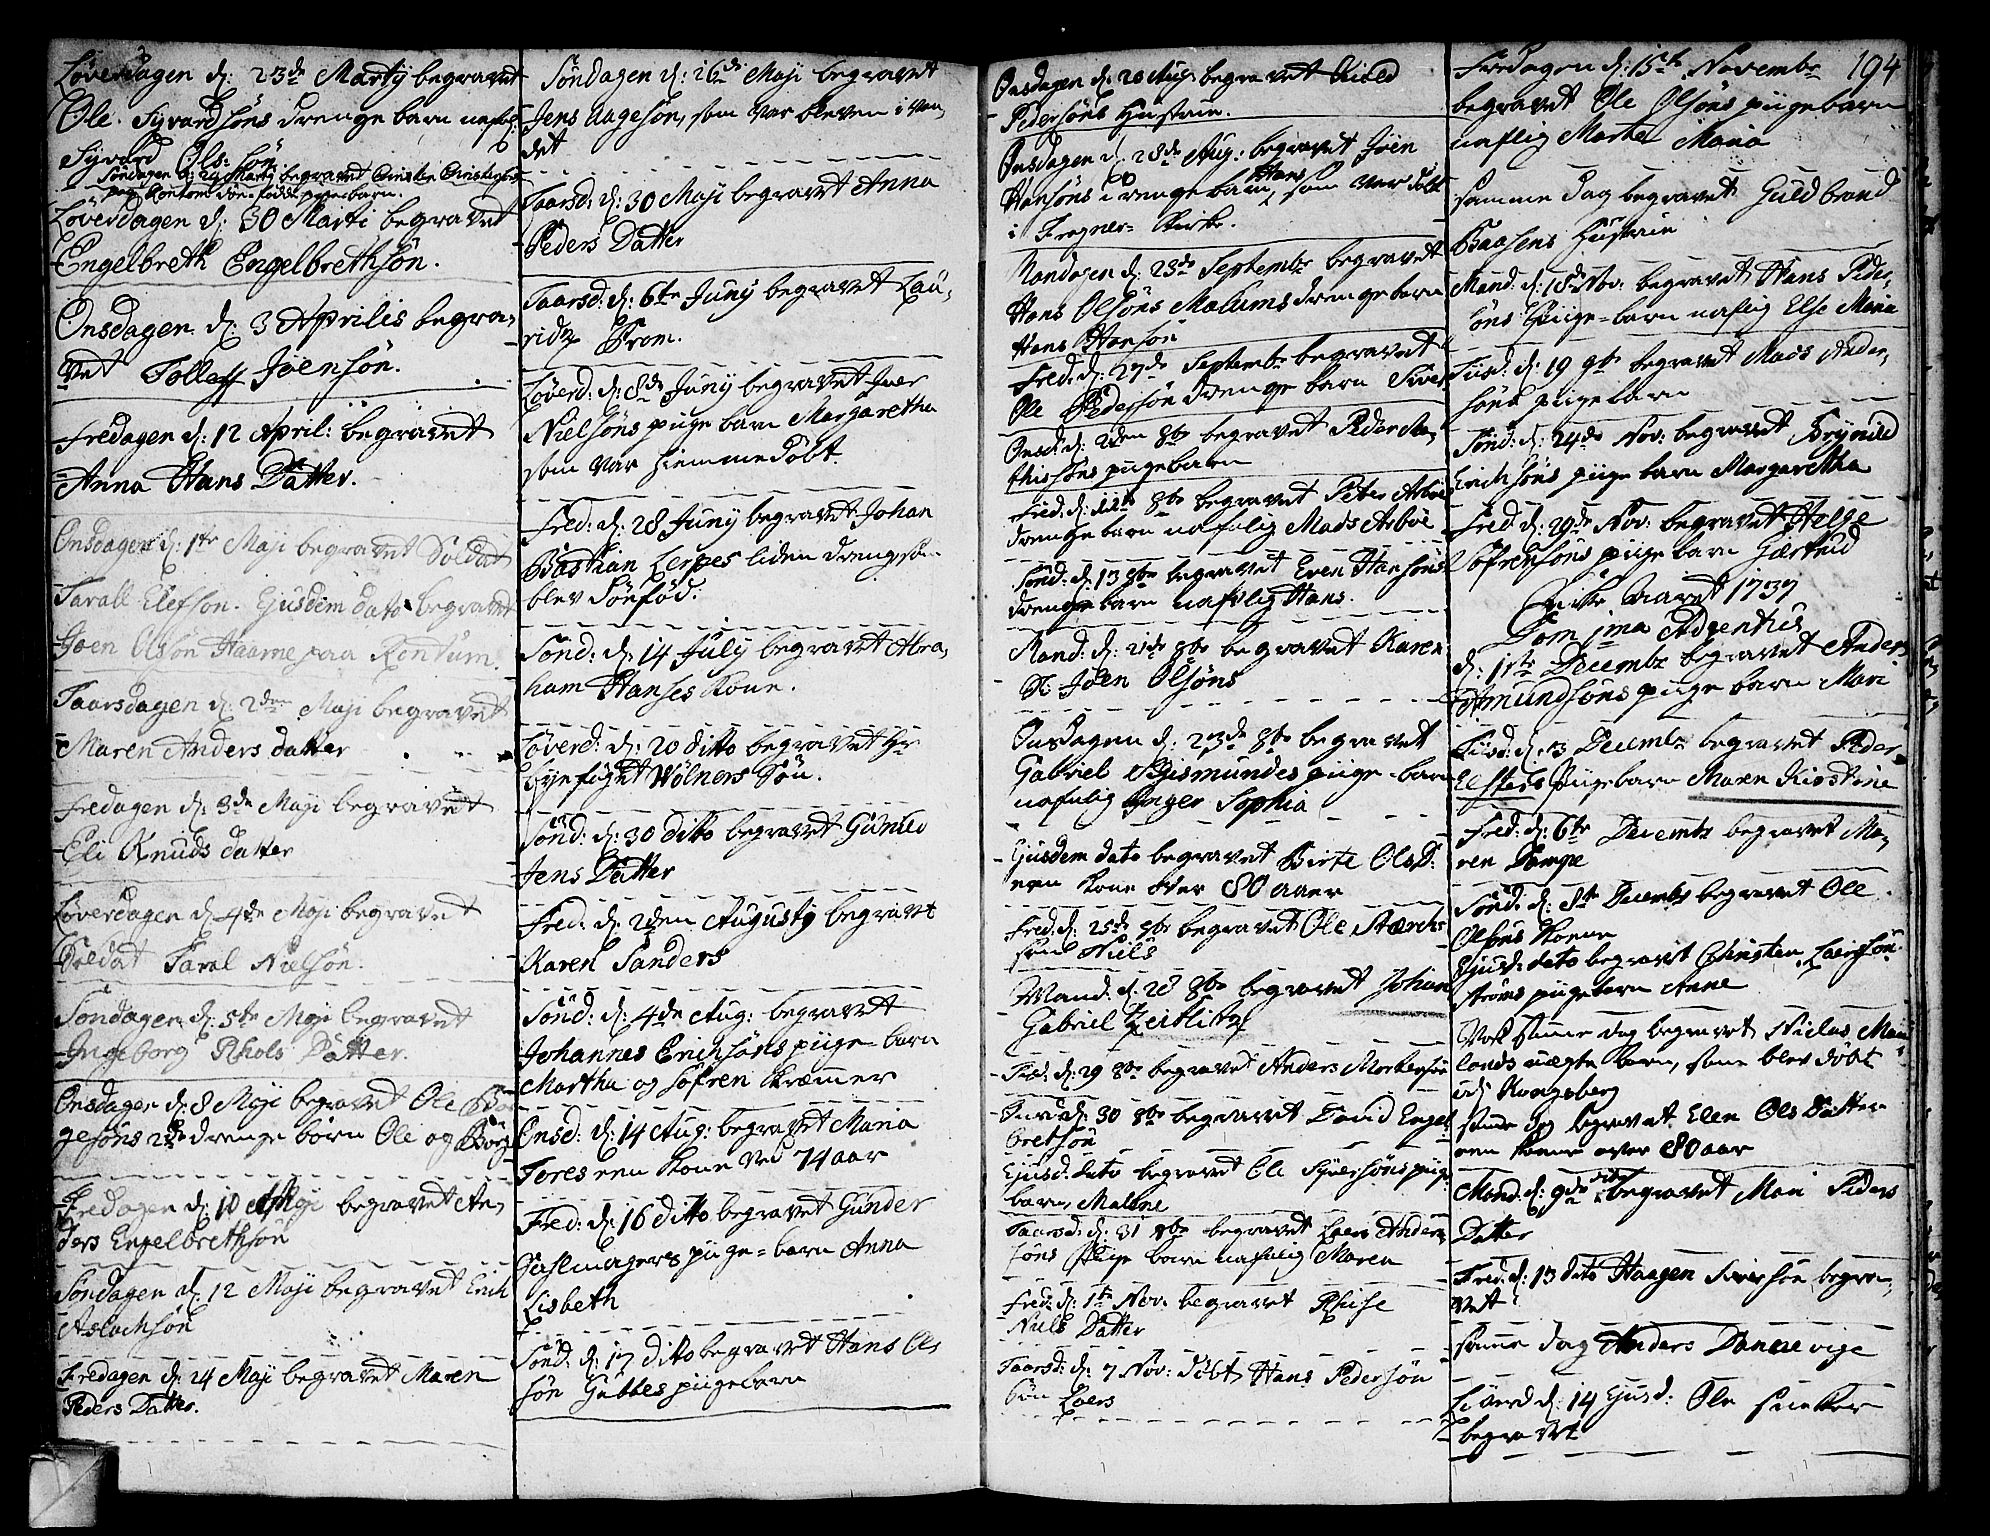 Løverdagen d: 23de Martij begravet
Ole Syvardsöns drenge barn nafl:
Syvard Ols: Sön
Søndagen d: 24 Martij begravet Christen Christophers
paa Rentom dødfødde pigebarn.
Løverdagen d: 30 Marti begravet
Engelbreth Engelbrethsön.
Onsdagen d: 3 Aprilis begra,
vet Tolleff Joensön.
Fredagen d: 12 April: begravet
Anna Hans Datter.
Onsdagen d: 1te Maji begravet Soldat
Tarall Elefson. Ejusdem dato begravet
Joen Olsson Haarne paa Rentum.
Taarsdagen d: 2den Maji begravet
Maren Anders datter
Fredagen d: 3de Maji begravet
Eli Knuds datter
Løverdagen d: 4de Maji begravet
Soldat Taral Nielsön.
Søndagen d: 5te Maji begravet
Ingeborg Rhols Datter.
Onsdagen d: 8 Maji begravet Ole
gesöns 2de drenge børn Ole og Børge
Fredagen d: 10 Maji begravet An,
ders Engelbrethsön
Søndagen d: 12 Maji begravet Erich
Aslachsön
Fredagen d: 24 Maji begravet Maren
Peders Datter.
Søndagen d: 26de Maji begravet
Jens Aagesön, som var bleven i van,
det
Taarsd: d: 30 Maji begravet Anna
Peders Datter
Taarsd: d: 6te Junij begravet Lau,
ridz From.
Løverd: d: 8de Junij begravet Iver
Nielsöns piige barn Margaretha
som var hiemmedöbt.
Fred: d: 28 Junij begravet Johan
Bastian Lerpes liden dreng som
blev Dödföd.
Sönd: d: 14 July begravet Abra,
ham Hanses Kone.
Løverd: d: 20 ditto begravet Hr
byefoget Wølners Sön.
Sönd: d: 30 ditto begravet Gunild
Jens Datter
Fred: d: 2den Augusty begravet
Karen Sanders
Sönd: d: 4de Aug: begravet
Johannes Erichsöns piige barn
Martha og Sofren Kræmmer
Onsd: d: 14 Aug: begravet Maria
Feres een Kone ved 74 aar
Fred: d: 16 ditto begravet Gunder
Sahlmagers piige=barn Anna
Lisbeth
Sönd: d: 17 dito begravet Hans Ol,
sön Gabbes piigebarn
Onsdagen d: 20 Aug: begravet
Pedersöns Hustrue.
Onsdagen d: 28de Aug: begravet Joen
Hansöns drengebarn Hans, som var döbt
i Fragner= Kirke.
Mandagen d: 23de Septembr begravet
Hans Olsöns Malums drengebarn
Hans Hansön
Fred: d: 27de Septembr begravet
Ole Pedersön drenge barn Siver
Onsd: d: 2den 8br begravet Peder Ma,
thissöns piigebarn
Fred: d: 11te 8br begravet Peter Arboe
drenge barn nafnlig Mads Arboe
Sönd: d: 13 8br begravet Even Hansöns
drengebarn nafnlig Hans.
Mand: d: 21de 8br begravet Karen
Joen Olsöns
Onsdagen d: 23de 8br begravet
Gabriel Sigismundes piige=barn
nafnlig Inger Sophia
Ejusdem dato begravet Birte Olsd:
een Kone over 80 aaer
Fred: d: 25de 8br begravet Ole Stærchs
sön Niels
Mand: d: 28 8br begravet Johan
Gabriel Zeitlitz
Tisd: d: 29 8br begravet Anders Mortensön
Onsd: d: 30 8br begravet David Engel
bretsön
Ejusd: dato begravet Ole Syversöns piige
barn, Malene
Taarsd: d: 31 8br begravet Laers Anders
söns piige barn nafnlig Maren
Fred: d: 1te Nov: begravet Rhise
Niels Datter
Taarsd: d: 7 Nov: döbt Hans Pedersön
Sön Laers
194
Fredagen d: 15de Novembr
begravet Ole Olsöns piigebarn
naflig Marte Maria
samme dag begravet Guldbrand
Baasens Hustrue
Mand: d: 18de Nov: begravet Hans Peder,
söns Piige=barn naflig Else Maria
Tiisd: d: 19 9br begravet Mads Ander,
söns pigebarn
Sönd: d: 24de Nov: begravet Brynild
Erichsöns piige barn Margaretha
Fred: d: 29de Nov: begravet Helge
Sofrensöns piige barn Giertrud
Kirke Aaret 1737
Dom 1ma Adventus
d: 1ste Decembr begravet Anders
Amundsöns piige barn Mari
Tiisd: d: 3 Decembr begravet Peder
Elsters piigebarn Maren Kirstine
Fred: d: 6te Decembr begravet Ma,
ren Dampe
Sönd: d: 8te Decembr begravet Ole
Olsens Konne
Ejusd: dato begravet Christen Laersön
ströms piigebarn Anne
Nok samme dag begravet Niclas Mai
lands uægte barn, som blev döbt
ud: Kongsberg
samme dag begravet Elen Ols Datter
een Konne over 80 aar
Mand: d: 9de dito begravet Mari Peders
Datter
Fred: d: 13 dito Haagen Siversön begra,
vet
samme dag Anders Dannevige
Löverd: d: 14 Ejusd: Ole snecker
begravet